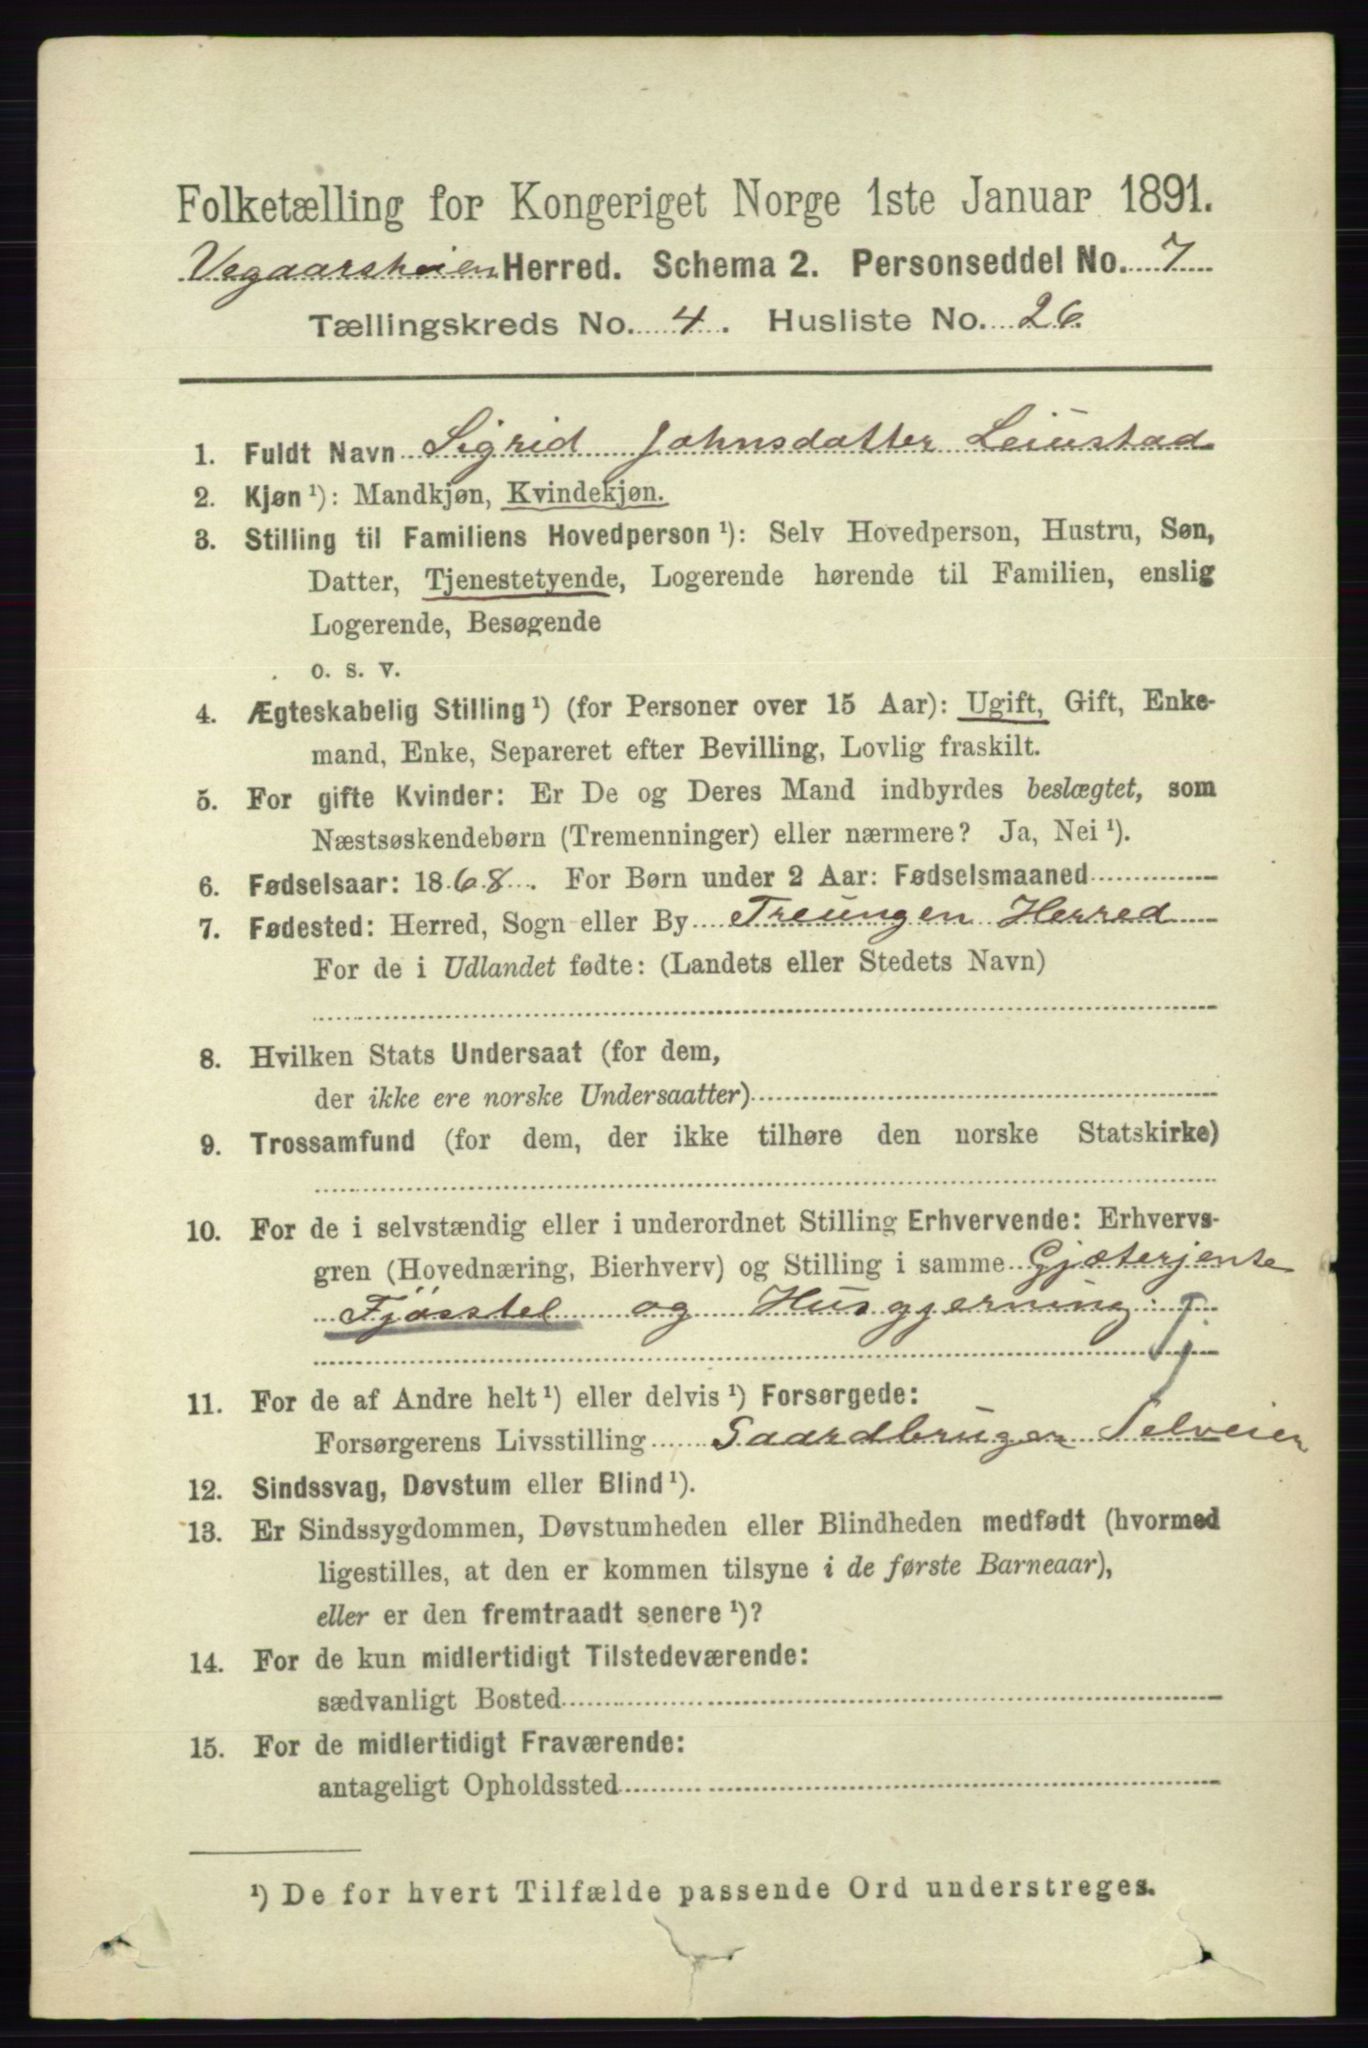 Folketælling for Kongeriget Norge 1ste Januar 1891.
Vegaarsheien Herred. Schema 2. Personseddel No. 7
Tællingskreds No. 4. Husliste No. 26.
1. Fuldt Navn Sigrid Johnsdatter Leiustad
2. Kjøn ¹): Mandkjøn, Kvindekjøn.
3. Stilling til Familiens Hovedperson ¹): Selv Hovedperson, Hustru, Søn,
Datter, Tjenestetyende, Logerende hørende til Familien, enslig
Logerende, Besøgende
o. s. v.
4. Ægteskabelig Stilling ¹) (for Personer over 15 Aar): Ugift, Gift, Enke-
mand, Enke, Separeret efter Bevilling, Lovlig fraskilt.
5. For gifte Kvinder: Er De og Deres Mand indbyrdes beslægtet, som
Næstsøskendebørn (Tremenninger) eller nærmere? Ja, Nei ¹).
6. Fødselsaar: 1868. For Børn under 2 Aar: Fødselsmaaned
7. Fødested: Herred, Sogn eller By Treungen Herred
For de i Udlandet fødte: (Landets eller Stedets Navn)
8. Hvilken Stats Undersaat (for dem,
der ikke ere norske Undersaatter)
9. Trossamfund (for dem, der ikke tilhøre den norske Statskirke)
10. For de i selvstændig eller i underordnet Stilling Erhvervende: Erhvervs-
gren (Hovednæring, Bierhverv) og Stilling i samme Gjæterjente
Fjøsstel og Husgjerning. Tj.
11. For de af Andre helt ¹) eller delvis ¹) Forsørgede:
Forsørgerens Livsstilling Gaardbruger Selveier
12. Sindssvag, Døvstum eller Blind ¹).
13. Er Sindssygdommen, Døvstumheden eller Blindheden medfødt (hvormed
ligestilles, at den er kommen tilsyne i de første Barneaar),
eller er den fremtraadt senere ¹)?
14. For de kun midlertidigt Tilstedeværende:
sædvanligt Bosted
15. For de midlertidigt Fraværende:
antageligt Opholdssted
¹) De for hvert Tilfælde passende Ord understreges.